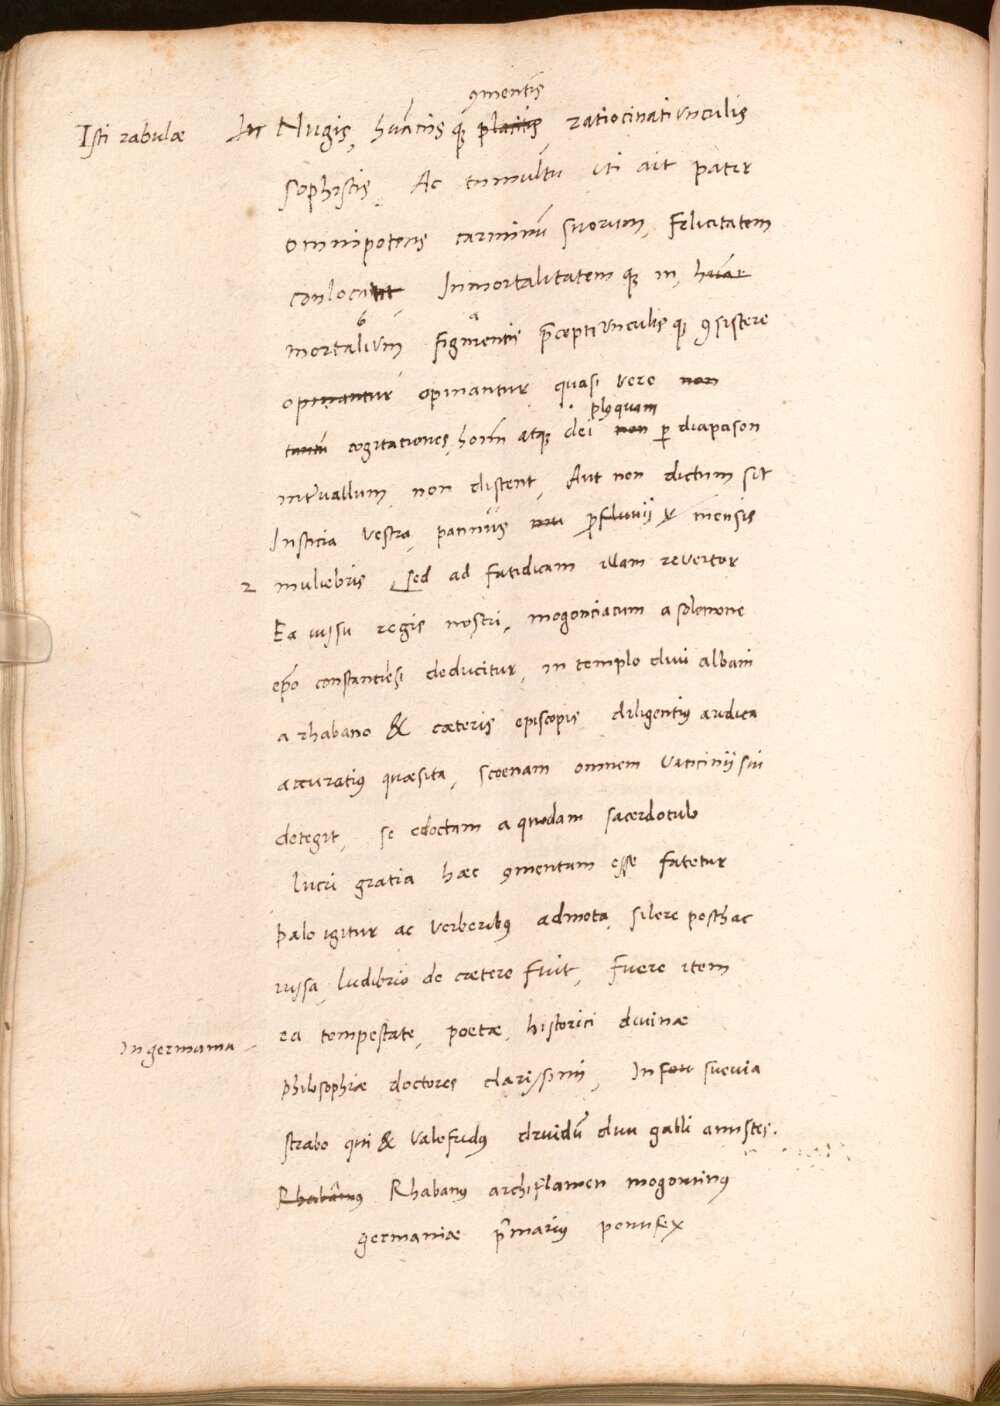 ꝯmentis
Isti rabulæ In Nugis, huānis qꝫ placitis, ratiocinatiunculis
sophistis, Ac tumultu uti ait pater
omnipotens carminū suorum, felicitatem
conlocant Inmortalitatemqꝫ in, huāe
mortalium figmentis p̄ceptiunculisqꝫ ꝯsistere
opinantur opinantur quasi vero non
plꝰquam
tantū cogitationes, hoīm atqꝫ dei non ꝑ diapason
intervallum non distent, Aut non dictum sit
Insticia vestra, pannus ꝓfluvij mensis
2 muliebris, sed ad fatidicam illam revertor
Ea iussu regis nostri, mogontiacum a solomone
ep̄o constantiēsi deducitur, in templo divi albani
a rhabano & cæteris episcopis, diligentiꝰ audita
accuratiꝰ quæsita, scoenam omnem vaticinij sui
detegit, se edoctam a quodam sacerdotulo
lucri gratia hæc ꝯmentum esse fatetur
palo igitur ac verberibꝰ admota, silere posthac
iussa, ludibrio de cætero fuit, fuere item
ea tempestate, poetæ, historici divinæ
In germania
philosophiæ doctores clarissimi, In suevia
strabo qui & valofridꝰ druidū divi galli antistes.
Rhabanꝰ Rhabanꝰ archiflamen mogontinꝰ
germaniæ p̄mariꝰ pontifex